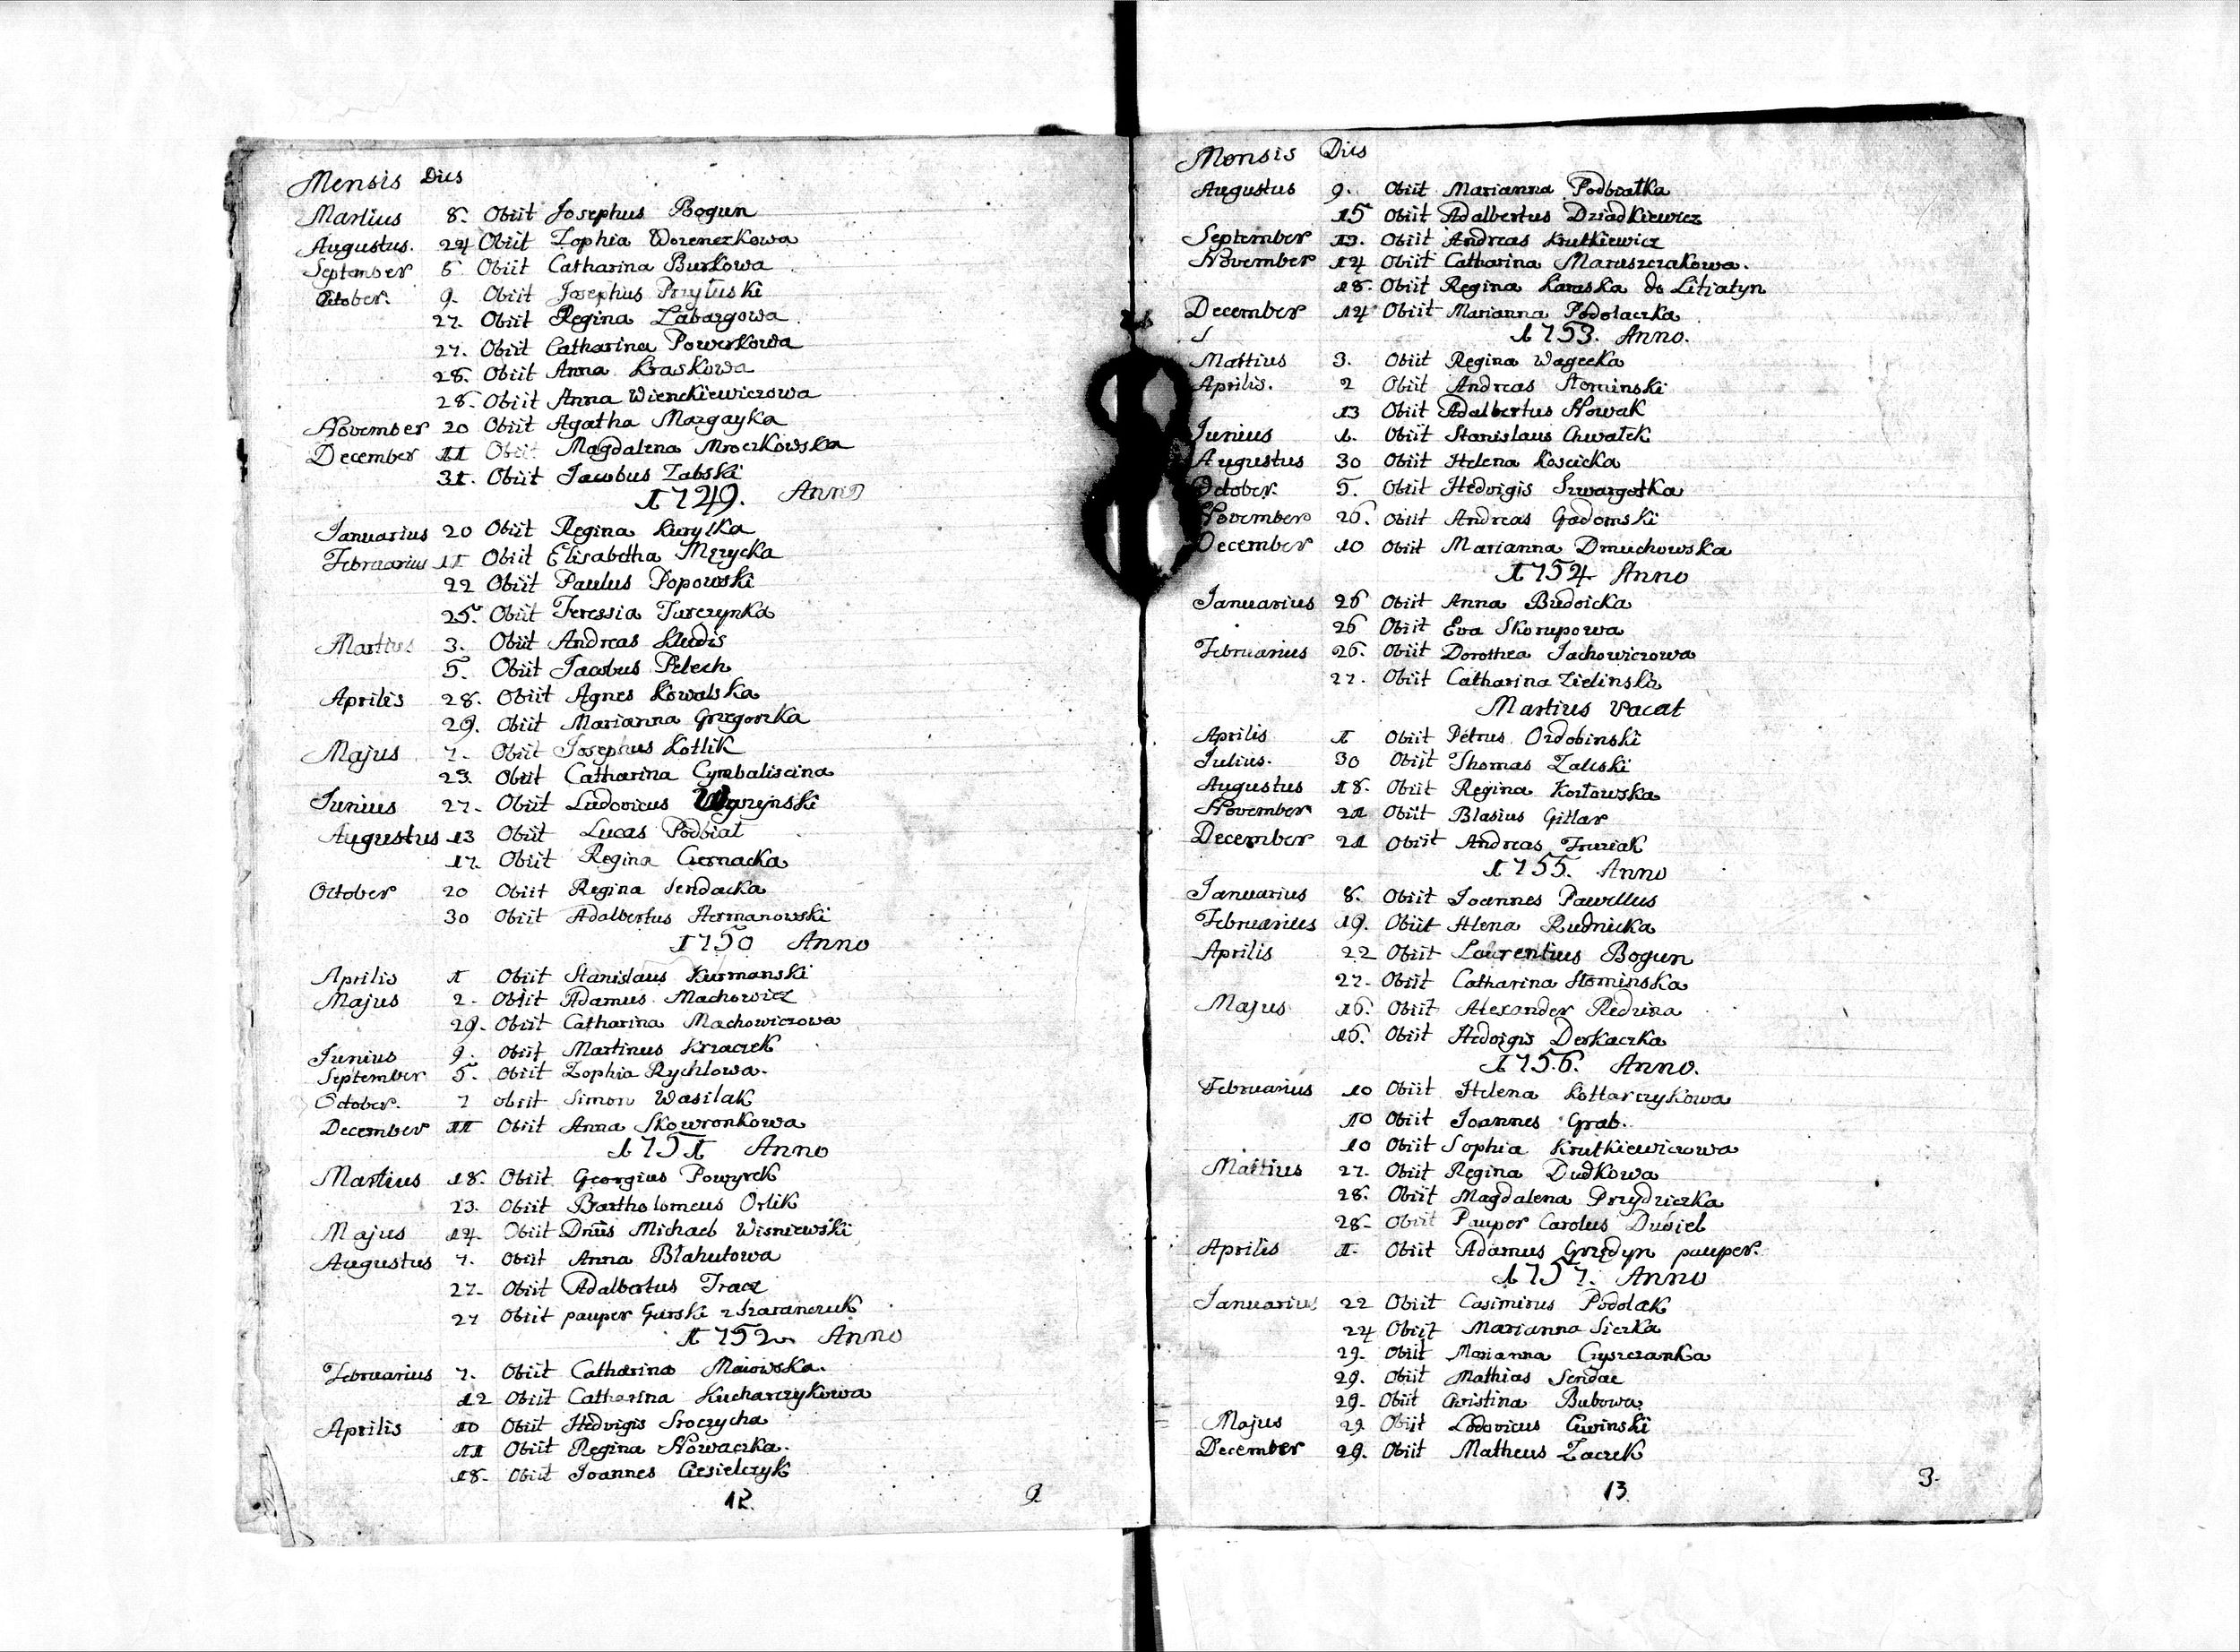 Mensis Dies
Martius 8. Obiit Josephus Bogun
Augustus. 24 Obiit Zophia Worenezkowa
September 6 Obiit Catharina Burkowa
October. 9. Obiit Josephus Przyłuski
27. Obiit Regina Zabazgowa
27. Obiit Catharina Powerkowa
28. Obiit Anna Kraskowa
28. Obiit Anna Wienckiewiczowa
November 20 Obiit Agatha Mazgayka
December 11 Obiit Magdalena Mroczkowska
31. Obiit Jacobus Zabski
1749. Anno
Januarius 20 Obiit Regina Kuryłka
Februarius 11 Obiit Elisabetha Męzycka
22 Obiit Paulus Popowski
25. Obiit Teressia Turczynka
Martius 3. Obiit Andreas Kludis
5. Obiit Jacobus Pelech
Aprilis 28. Obiit Agnes Kowalska
29. Obiit Marianna Grzegorzka
Majus 7. Obiit Josephus Kotlik
23. Obiit Catharina Cymbaliscina
Junius 27. Obiit Ludovicus
Augustus 13 Obiit Lucas Podbiał
17. Obiit Regina Czernacka
October 20 Obiit Regina Sendacka
30 Obiit Adalbertus Hermanowski
1750 Anno
Aprilis 1 Obiit Stanislaus Kurmanski
Majus 2. Obiit Adamus Machowicz
29. Obiit Catharina Machowiczowa
Junius 9. Obiit Martinus Krzaczek
September 5. Obiit Zophia Rychlowa.
October. 7 obiit Simon Wasilak
December 11 Obiit Anna Skowronkowa
1751 Anno
Martius 18. Obiit Georgius Powyrek
23. Obiit Bartholomeus Orlik
Majus 14. Obiit Dnus Michael Wisniewski
Augustus 7. Obiit Anna Błahutowa
27. Obiit Adalbertus Tracz
27 Obiit pauper Gurski z Szaranczuk
1752 Anno
Februarius 7. Obiit Catharina Maiowska.
12 Obiit Catharina Kucharczykowa
Aprilis 10 Obiit Hedvigis Sroczycha
11 Obiit Regina Nowaczka.
18. Obiit Joannes Ciesielczyk
12. 9
Mensis Dies
Augustus 9. Obiit Marianna Podbiałka
15 Obiit Adalbertus Dziadkiewicz
September 13. Obiit Andreas Krutkiewicz
November 14 Obiit Catharina Maruszczakowa.
18. Obiit Regina Karaska de Litiatyn
December 14 Obiit Marianna Podolaczka
1753. Anno.
Martius 3. Obiit Regina Wagecka
Aprilis. 2 Obiit Andreas Słominski
13 Obiit Adalbertus Nowak
Junius 1. Obiit Stanislaus Chwałek
Augustus 30 Obiit Helena Koscicka
October. 5. Obiit Hedvigis Szwargotka
November 26. Obiit Andreas Gadomski
December 10 Obiit Marianna Dmuchowska
1754 Anno
Januarius 26 Obiit Anna Budzicka
26 Obiit Eva Skorupowa
Februarius 26. Obiit Dorothea Jachowiczowa
27. Obiit Catharina Zielinska
Martius Vacat
Aprilis 1 Obiit Petrus Ozdobinski
Julius. 30 Obiit Thomas Zaleski
Augustus 18. Obiit Regina Kozłowska
November 21 Obiit Blasius Gitlar
December 21 Obiit Andreas
1755. Anno
Januarius 8. Obiit Joannes Pawellus
Februarius 19. Obiit Helena Rudnicka
Aprilis 22 Obiit Laurentius Bogun
27. Obiit Catharina Słominska
Majus 16. Obiit Alexander Redzina
16. Obiit Hedvigis Derkaczka
1756. Anno.
Februarius 10 Obiit Helena Kotlarczykowa
10 Obiit Joannes Grab.
10 Obiit Sophia Krutkiewiczowa
Martius 27. Obiit Regina Dudkowa
28. Obiit Magdalena Przydziczka
28. Obiit Pauper Carolus Dusiel
Aprilis 1. Obiit Adamus Grzędyn pauper.
1757. Anno
Januarius 22 Obiit Casimirus Podolak
24 Obiit Marianna Siczka
29. Obiit Marianna Czyszczanka
29. Obiit Mathias Sendac
29. Obiit Christina Bubowa
Majus 29. Obiit Lodovicus Cwinski
December 29. Obiit Matheus Zaczek
13. 3.